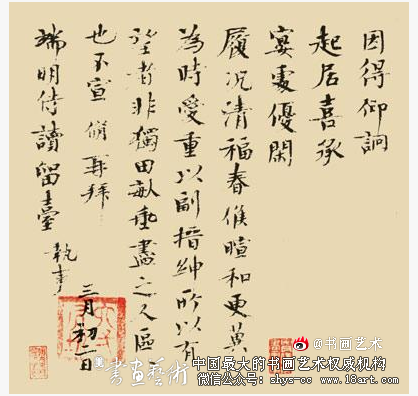 因得仰詢
起居喜承
宴處優閑
履況清福春候暄和更冀
為時愛重以副搢紳所以有
望者非獨田畝垂盡之人區〻
也不宣 脩再拜
端明侍讀留臺 執事
三月初二日
@书画艺术
書畫藝術
中国最大的书画艺术权威机构
微信公众号: shys-cc www.18art.com